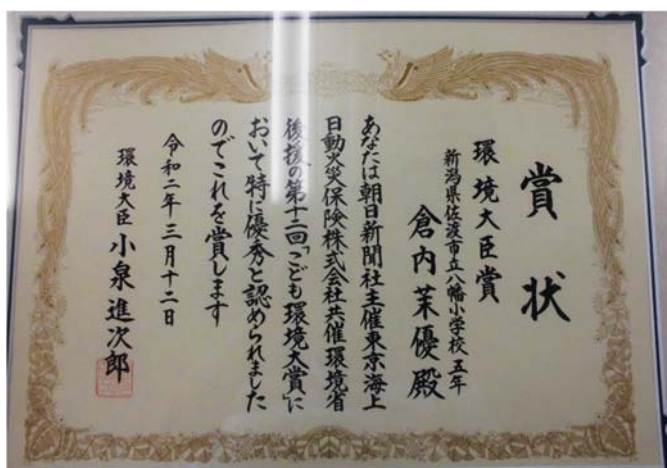 賞状
環境大臣賞
新潟県佐渡市立八幡小学校五年
倉内茉優殿
あなたは朝日新聞社主催東京海上
日動火災保険株式会社共催環境省
後援の第十二回「こども環境大賞」に
おいて特に優秀と認められました
のでこれを賞します
令和二年三月十二日
環境大臣 小泉進次郎